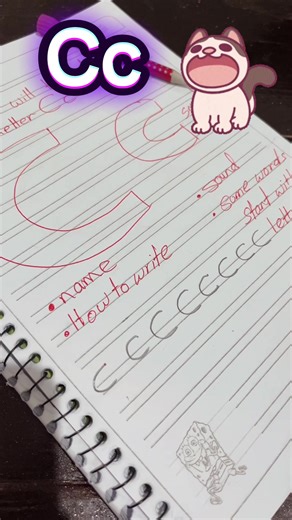 Cc
will
letter Cc
C c
• name
• How to write
• sound
• some words
start with
lett
C C C C C C C C